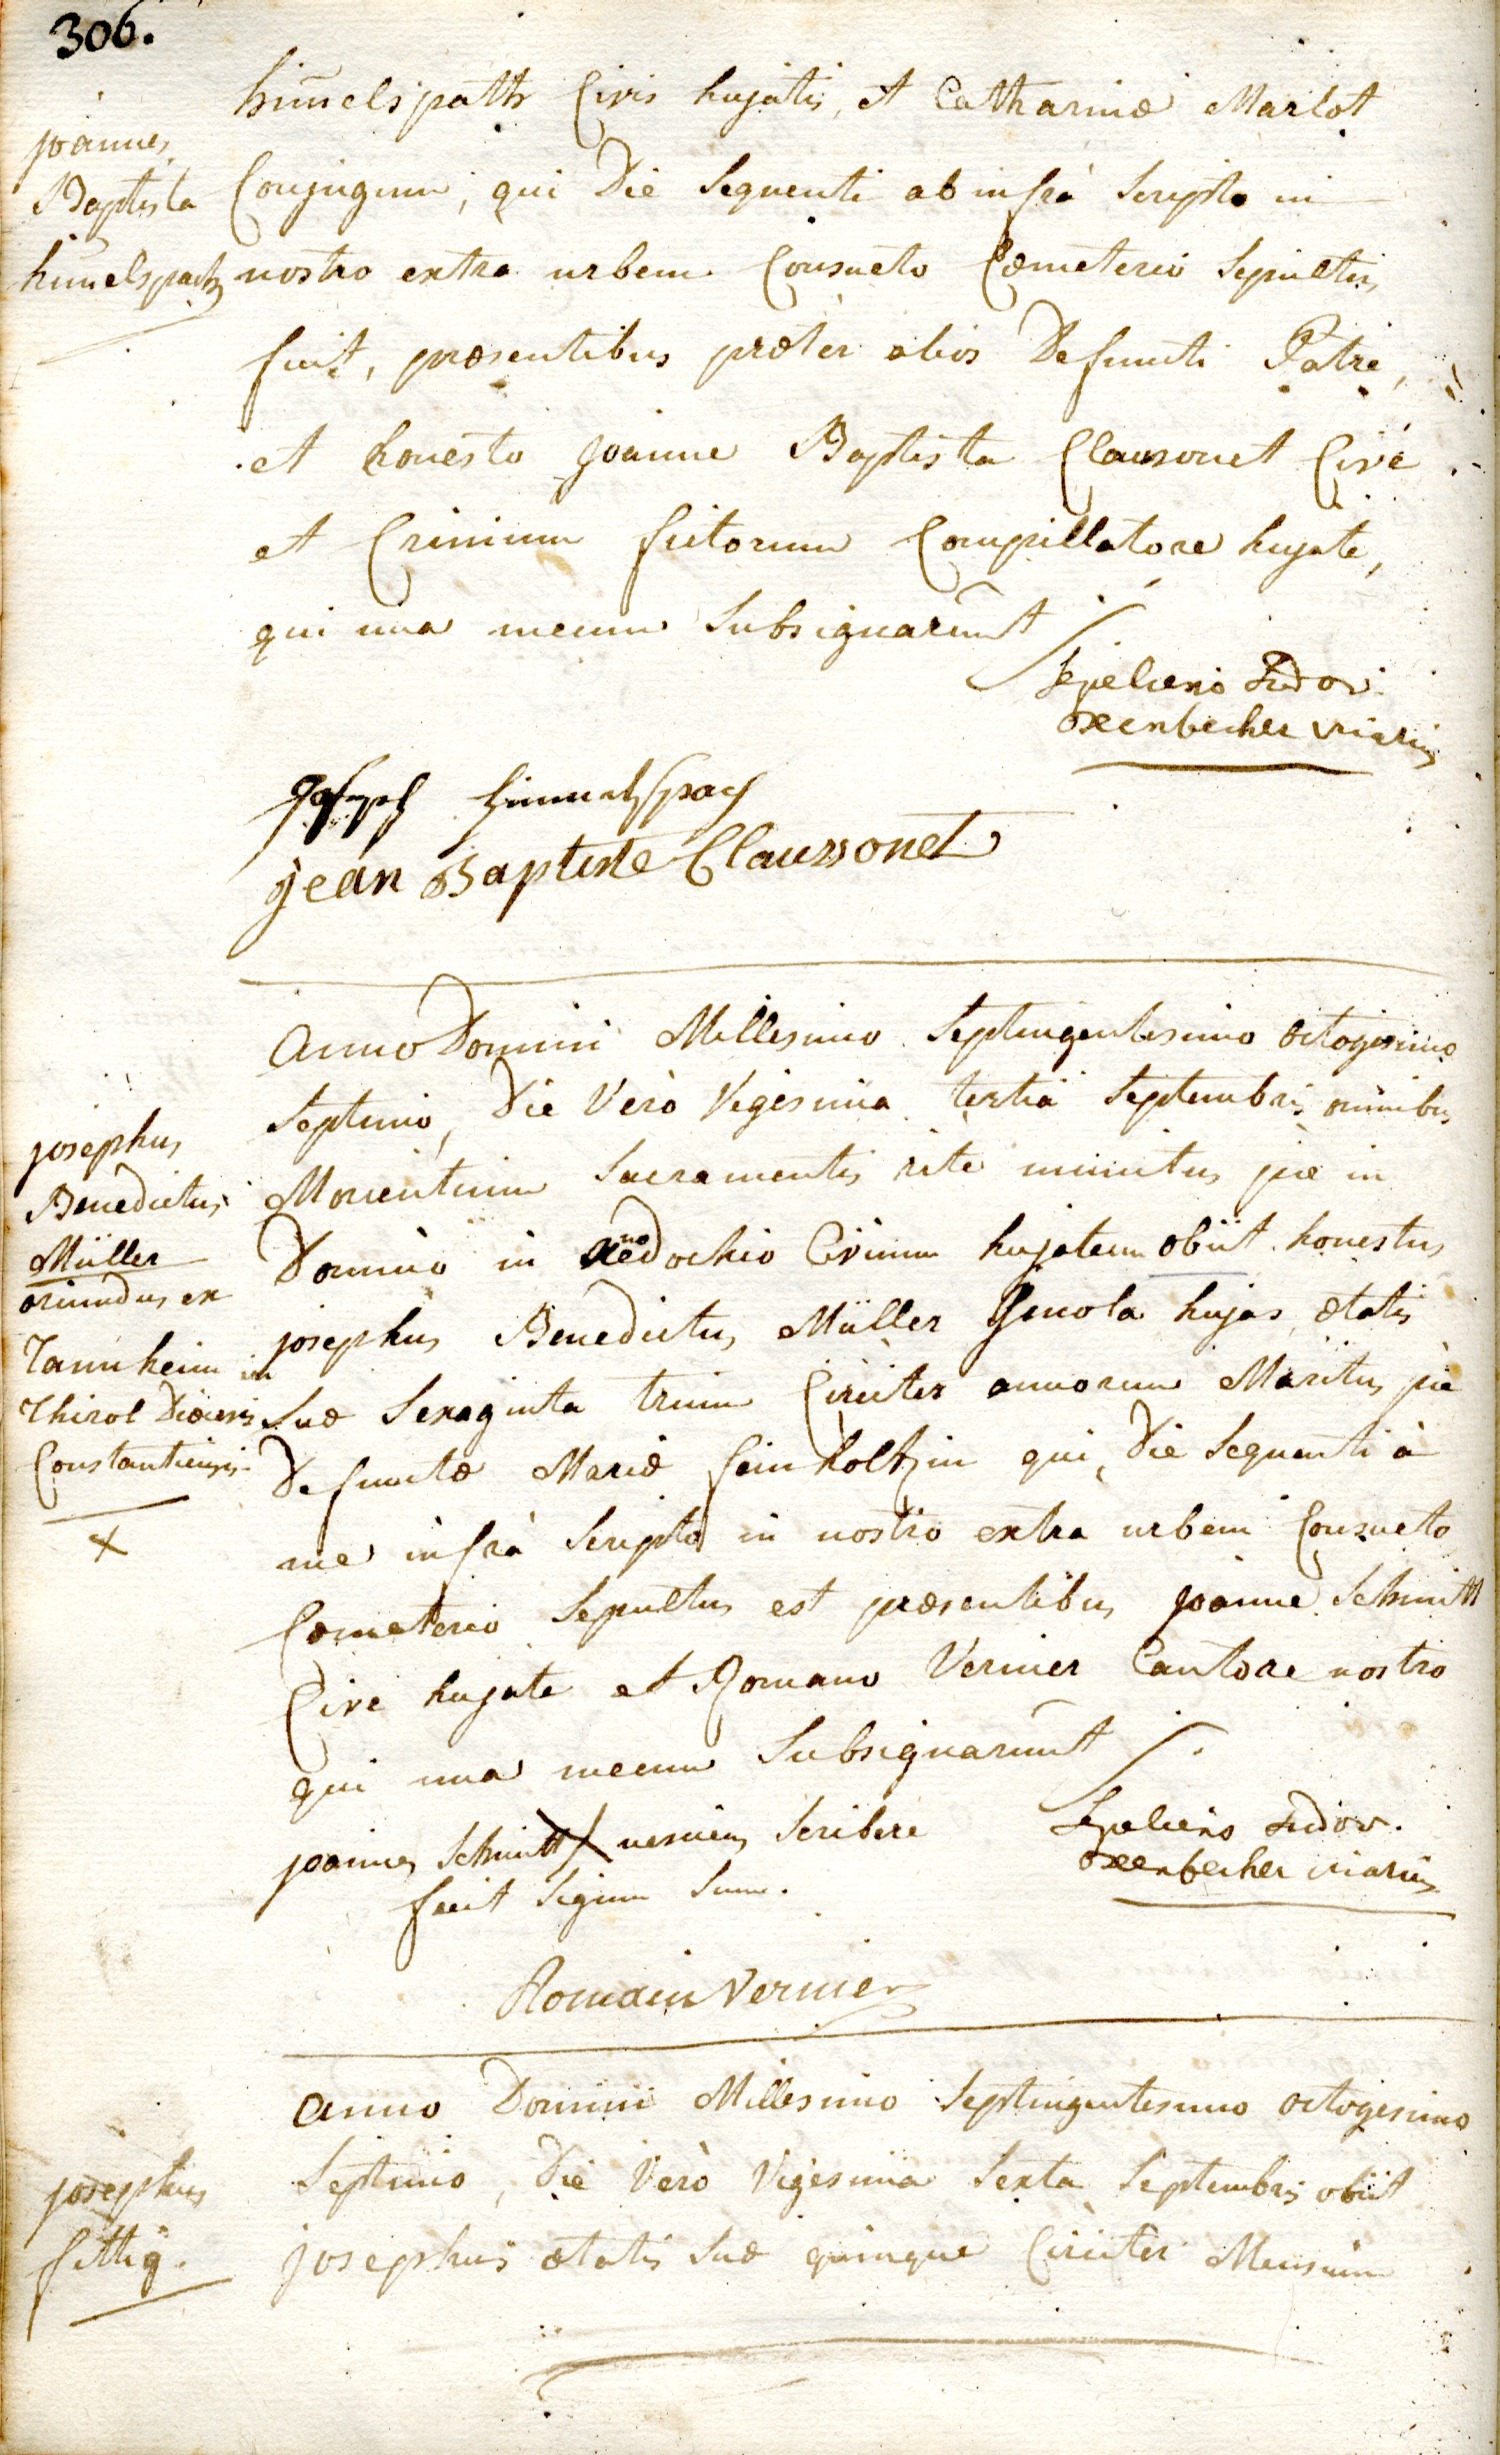 306.
Joannes
Baptista
him̄elspach
him̄elspath Civis hujatis, et Catharinæ Marlot
Conjugum, qui Die Sequenti ab infrà Scripto in
nostro extra urbem Consueto Cœmeterio Sepultus
fuit, præsentibus præter alios Defuncti Patre,
et honesto Joanne Baptista Clausonet Cive
et Crinium fictorum Compillatore hujate,
qui una mecum Subsignarunt
Sepeliens Fridor.
Oxenbecher vicarius
Joseph Himmelspach
jean Baptiste Claussonet
Josephus
Benedictus
Müller
oriundus ex
Tannheim in
Thirol Diœcesis
Constantiensis
x
Anno Domini Millesimo Septingentesimo octogesimo
Septimo, Die Verò Vigesima tertia Septembris omnibus
Morientium Sacramentis rite munitus piè in
Domino in Xenodochio Civium hujatum obiit honestus
josephus Benedictus Müller Incola hujas, ætatis
Suæ Sexaginta trium Circiter annorum Maritus piè
Defunctæ Mariæ feinholtzin qui Die Sequenti à
me infrà Scripto in nostro extra urbem Consueto
Cœmeterio Sepultus est præsentibus Joanne Schmitt
Cive hujate et Romano Vernier Cantore nostro
qui una mecum Subsignarunt
joannes Schmitt nesciens Scribere
fecit Signum Suum.
Sepeliens Fridor.
Oxenbecher vicarius
Romain Vernier
Josephus
fittig.
Anno Domini Millesimo Septingentesimo octogesimo
Septimo, Die Verò Vigesima Sexta Septembris obiit
josephus ætatis Suæ quinque Circiter Mensium